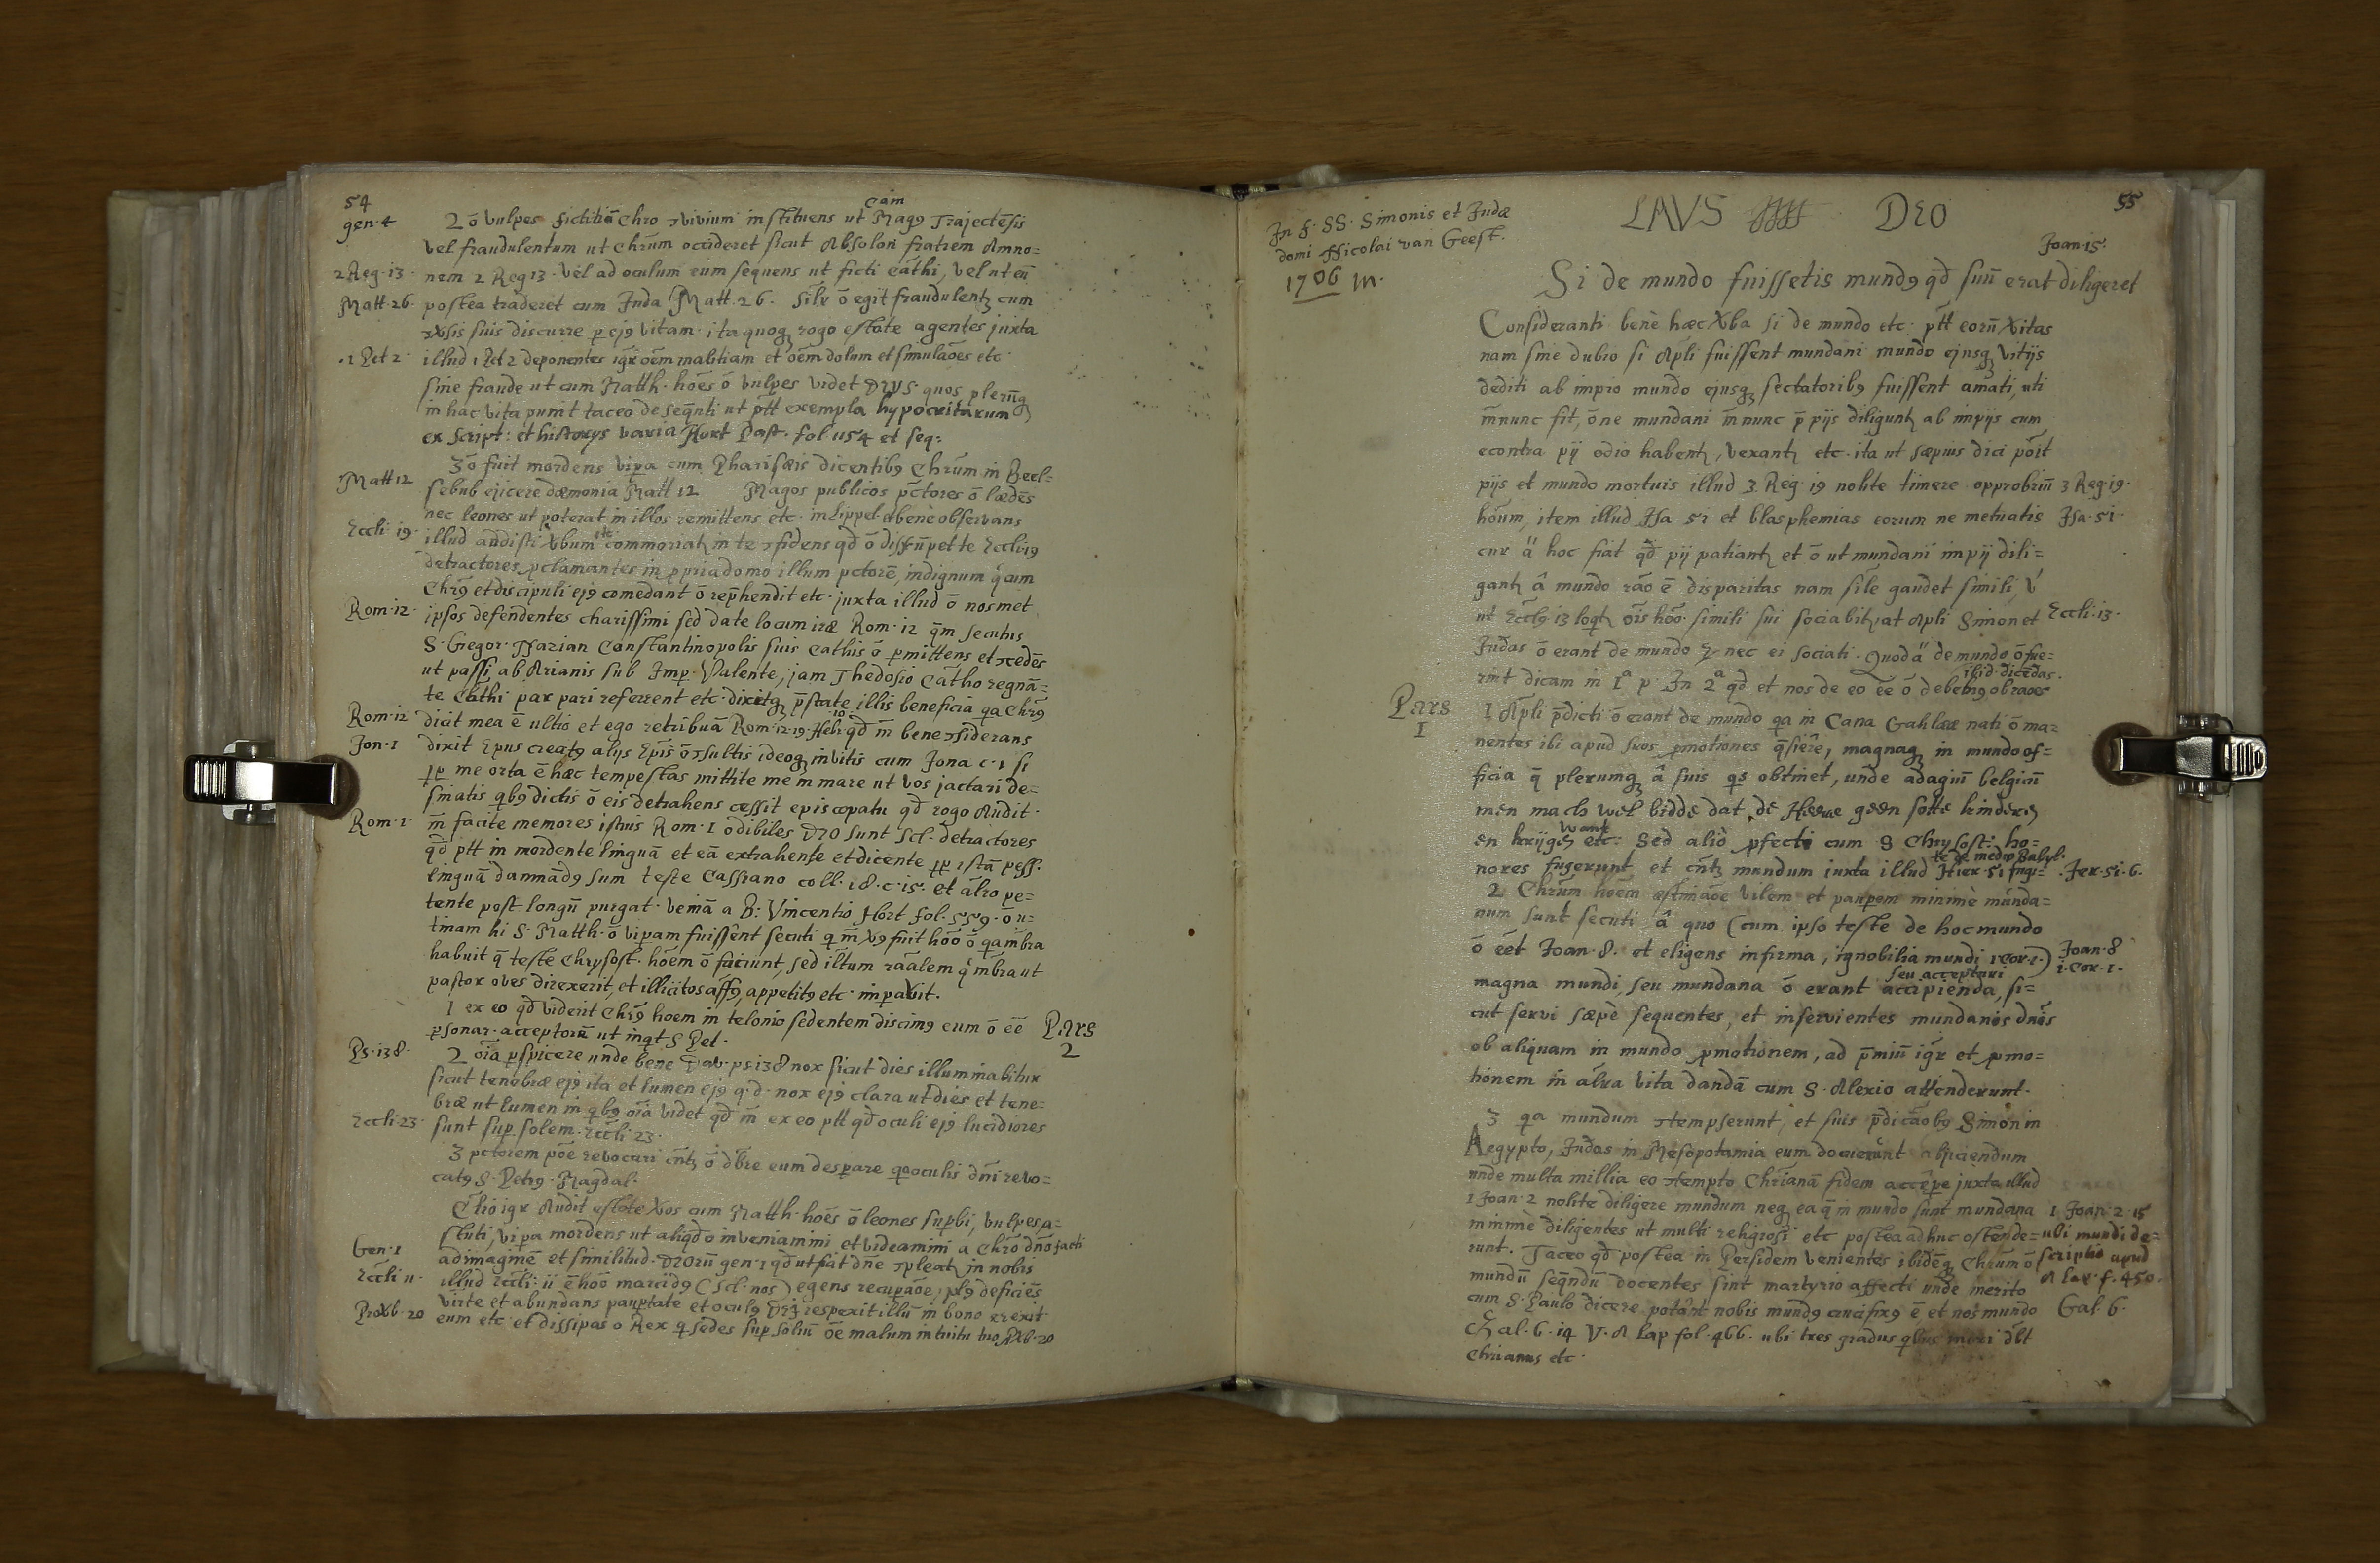 54
gen·4
Cam
2 ō vulpes fictitiā Chro ɔvivium instituens ut Mag9 Trajectēsis
vel fraudulentum ut Chrum occideret sicut Absolon fratrem Amno=
2 Reg·13· nem 2 Reg 13· vel ad oculum eum sequens ut ficti cathi, vel ut eū
Matt·26· postea traderet cum Juda Matt·26· silr ō egit fraudulentʒ cum
suis discurre p ej9 vitam· ita quoqʒ rogo estote agentes juxta
·1 Pet 2· illud 1 Pet 2 deponentes igr oem malitiam et oem dolum et simulaōes etc·
sine fraude ut cum Matth· hoes ō vulpes videt DEUS· quos plerūqʒ
in hac vita punit taceo de seqnti ut ptt exempla hypocritarum
ex script: et historys varia Hort Past· fol 1154 et seq:
3 ō fuit mordens vipa cum Pharisæis dicentib9 Chrum in Beel=
Matt 12 sebub ejicere dæmonia Matt 12 Magos publicos pctores ō lædēs
nec leones ut poterat in illos remittens etc· in Lippel· bene observans
Eccli 19· illud audisti Xbum commoriatʒ in te ɔfidens qd ō disrūpet te Eccli 19
detractores pclamantes in ppria domo illum pctorē, indignum qcum
Chr9 et discipuli ej9 comedant ō rephendit etc· juxta illud ō nosmet
Rom·12· ipsos defendentes charissimi sed date locum iræ Rom·12 qm secutus
S· Gregor· Nazian Constantinopolis suis cathis ō pmittens et ɔcedēs
ut passi, ab Arianis sub Imp· Valente, jam Thedosio Catho regnā=
te Cathi par pari referrent etc· dixitqʒ pstate illis beneficia qa Chr9
Rom·12 dicit mea ē ultio et ego retribuā Rom·12·19· Heb·10 qd m bene ɔsiderans
Jon·1 dixit Epus creat9 alys Epis ō ɔsultis ideoqʒ invitis cum Jona c·1 si
pp me orta ē hæc tempestas mittite me in mare ut vos jactari de=
sinatis qb9 dictis ō eis detrahens cessit episcopatu qd rogo Audit·
Rom·1· m facite memores istius Rom·1 odibiles DEO sunt scl· detractores
qd ptt in mordente linguā et eā extrahente et dicente pp istā pess·
linguā dammād9 sum teste Cassiano coll·18·c·15· et alio pe=
tente post longū purgat· veniā a B: Vincentio Hort fol·559· ō u=
tinam hi S· Matth· ō vipam fuissent secuti q m X9 fuit hoō ō qa mbra
habuit q teste Chrysost· hoem ō faciunt, sed illum raalem q mbra ut
pastor oves direxerit, et illicitos aff9, appetit9 etc· imparit·
1 ex eo qd viderit Chr9 hoem in telonio sedentem discim9 eum ō ēe
Pars
2
psonar· acceptorū ut inqt S Pet·
Ps·138· 2 oia pspicere unde bene Dav· ps 138 nox sicut dies illuminabitur
sicut tenebræ ej9 ita et lumen ej9 q·d· nox ej9 clara ut dies et tene=
bræ ut lumen in qb9 oia videt qd m ex eo ptt qd oculi ej9 lucidiores
Eccli·23· sunt sup solem· Eccli 23·
3 pctorem poē revocari ō dbre eum despare qa oculis dni revo=
cat9 S· Petr9· Magdal·
igr Audit estote Xos cum Matth· hoēs ō leones supbi, vulpes a=
stuti, vipa mordens ut aliqdo inveniamini et videamini a Chro dno facti
Gen·1 ad imaginē et similitud· DEOrū gen·1 qd ut fiat dne ɔpleatʒ in nobis
Eccli 11· illud Eccli: 11 ē hoō marcid9 (scl· nos) egens recupaōe, pl9 deficiēs
virtte et abundans pauptate et ocul9 DEI respexit illū in bono erexit
ProXb·20 eum etc et dissipas o Rex q sedes sup soliū oe malum intuitu tuo PXb·20
55
In f· SS· Simonis et Judæ
domi Nicolai van Geest·
1706 m·
LAVS DEO
Joan·15·
Si de mundo fuissetis mund9 qd suū erat diligeret
Consideranti bene hæc Xba si de mundo etc· ptt eorū Xitas
nam sine dubio si Apli fuissent mundani mundo ejusqʒ vitijs
dediti ab impio mundo ejusqʒ sectatorib9 fuissent amati, uti
m nunc fit, ōne mundani m nunc p pijs diliguntʒ ab impijs cum
econtra pij odio habentʒ, vexantʒ etc· ita ut sæpius dici poit
pijs et mundo mortuis illud 3 Reg· 19 nolite timere opprobriū 3 Reg·19·
houm, item illud Isa 51 et blasphemias eorum ne metuatis Isa·51·
cur a hoc fiat qd pij patiantʒ et ō ut mundani impij dili=
gantʒ â mundo rao ē disparitas nam sile gaudet simili, v
ut Eccli 13 loqtʒ ois hoō simili sui sociabitʒ, at Apli Simon et Eccli·13·
Judas ō erant de mundo nec ei sociati· Quod a de mundo ō fue=
rint dicam in 1a p· In 2a qd et nos de eo ēe ō debem9 ob raoēs
ibid· dicēdas·
Pars
I
1 Apli pdicti ō erant de mundo qa in Cana Galilææ nati ō ma=
nentes ibi apud suos pmotiones qsiere, magnaqʒ in mundo of=
ficia q plerumqʒ â suis qs obtinet, unde adagiū belgicū
men mach wel bidde dat de Heere geen sotte kinderen
want
en krijgen etc: sed alio pfecti cum S Chrysost: ho=
te de medio Babyl·
nores fugerunt et mundum juxta illud Hier·51 fugi= ·Jer·51·6·
2 Chrum hoem estimaōe vilem et paupem minime munda=
num sunt secuti â quo (cum ipso teste de hoc mundo
ō ēet Joan·8· et eligens infirma, ignobilia mundi 1 Cor·1·) Joan·8
1·Cor·1·
seu acceptari
magna mundi, seu mundana ō erant accipienda, si=
cut servi sæpè sequentes, et inservientes mundanis dnis
ob aliquam in mundo pmotionem, ad pmiū igr et pmo=
tionem in alra vita dandā cum S· Alexio attenderunt·
3 qa mundum ɔtempserunt, et suis pdicaōb9 Simon in
Aegypto, Judas in Mesopotamia eum docuerunt abjiciendum
unde multa millia eo ɔtempto Chrianā fidem accepe juxta illud
1 Joan·2 nolite diligere mundum neqʒ ea q in mundo sunt mundana 1 Joan·2·15
minime diligentes ut multi religiosi etc postea adhuc ostende= ubi mundi de=
runt· Taceo qd postea in Persidem venientes ibidēqʒ Chrum ō scriptio apud
mundū seqndū docentes sint martyrio affecti unde merito A Lap·f·450·
cum S· Paulo dicere potant nobis mund9 crucifix9 ē et nos mundo Gal·6·
Gal·6·14 V· A Lap fol·466· ubi tres gradus qbus mori dbt
Chrianus etc·